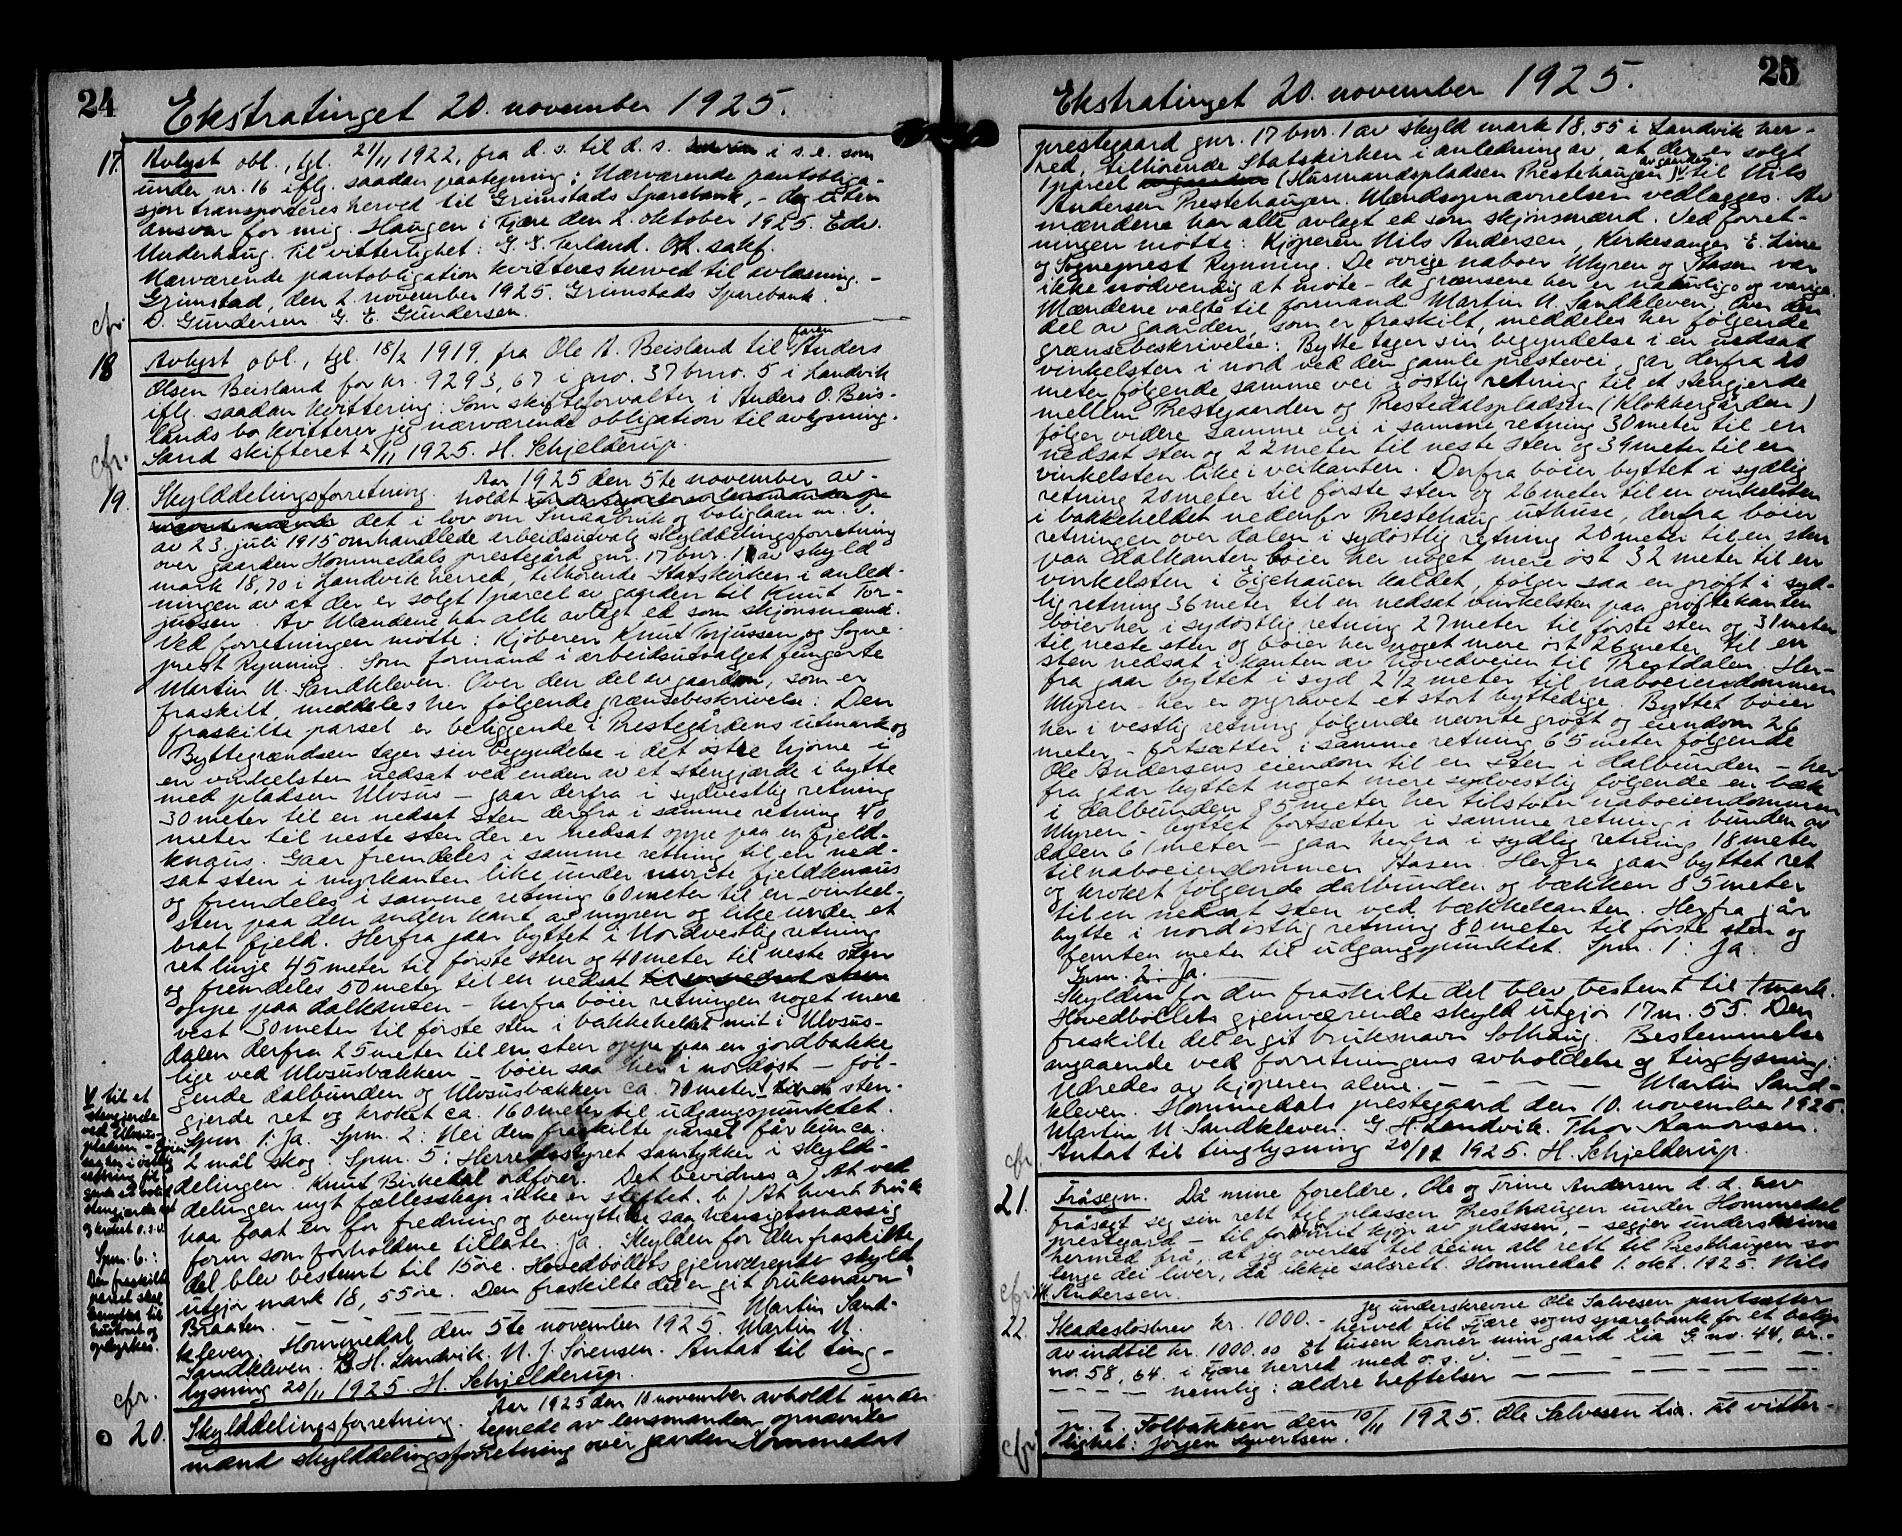 24
Ekstratinget 20. november 1925.
17. Avlyst obl., tgl. 21/11 1922, fra d. s. til d. s. i s.e. som
under nr. 16 iflg. saadan paategning: Nærværende pantobliga-
sjon transporteres herved til Grimstads Sparebank, - dog uten
ansvar for mig. Haugen i Fjære den 2. oktober 1925. Edv.
Underhaug. Til vitterlighet: G. T. Terland. O.r. sakf.
Nærværende pantobligation kvitteres herved til avlæsning. -
Grimstad, den 2. november 1925. Grimstads Sparebank.
cfr. O. Gundersen G. E. Gundersen.
18 Avlyst obl., tgl. 18/2 1919, fra Ole A. Beisland til faren Anders
Olsen Beisland for kr. 9293,67 i gno. 37 brno. 5 i Landvik
iflg. saadan kvittering: Som skifteforvalter i Anders O. Beis-
lands bo kvitterer jeg nærværende obligation til avlysning.
cfr. Sand skifteret 2/11 1925. H. Schjelderup.
19 Skylddelingsforretning. Aar 1925 den 5te november av-
holdt undertegnede av lensmanden op-
nævnte mænd det i lov om Smaabruk og boliglaan m. v.
av 23. juli 1915 omhandlede arbeidsutvalg skylddelingsforretning
over gaarden Hommedals prestegård gnr. 17 bnr. 1 av skyld
mark 18,70 i Landvik herred, tilhørende Statskirken i anled-
ningen av at der er solgt 1 parcel av gaarden til Knut Tor-
jussen. Av Mændene har alle avlagt ed som skjønsmænd.
Ved forretningen møtte: Kjøberen Knut Torjussen og Sogne-
prest Rynning. Som formand i arbeidsutvalget fungerte
Martin U. Sandkleven. Over den del av gaarden, som er
fraskilt, meddeles her følgende grænsebeskrivelse: Den
fraskilte parsel er beliggende i Prestegårdens utmark og
Byttegrændsen tager sin begyndelse i det østre hjørne i
en vinkelsten nedsat ved enden av et stengjærde i bytte
med pladsen Ulvsus - gaar derfra i sydvestlig retning
30 meter til en nedsat sten derfra i samme retning 40
meter til neste sten der er nedsat oppe paa en fjeld-
knaus. Gaar fremdeles i samme retning til en ned-
sat sten i myrkanten like under nævnte fjeldknaus
og fremdeles i samme retning 60 meter til en vinkel-
sten paa den anden kant av myren og like under et
brat fjeld. Herfra gaar byttet i Nordvestlig retning
ret linje 45 meter til første sten og 40 meter til neste sten
og fremdeles 50 meter til en nedsat til en nedsat sten
oppe paa dalkanten - herfra bøier retningen noget mere
vest 30 meter til første sten i bakkehellet mit i Ulvsus-
dalen derfra 25 meter til en sten oppe paa en jordbakke
lige ved Ulvsusbækken - bøier saa her i nordøst - føl-
gende dalbunden og Ulvsusbækken ca. 70 meter V til et sten-
gjerde ret og kroket ca. 160 meter til udgangspunktet.
Spm 1: Ja. Spm. 2: Nei den fraskilte parsel får kun ca.
2 mål skog. Spm. 5: Herredsstyret samtykker i skyld-
delingen. Knut Birkedal ordfører. Det bevidnes a) At ved
delingen nyt fællesskap ikke er stiftet. b) At hvert bruk
har faat en for fredning og benyttelse saa hensigtsmæssig
form som forholdene tillater: ja. Skylden for den fraskilte
del blev bestemt til 15 øre. Hovedbøllets gjenværende skyld
utgjør mark 18,55 øre. Den fraskilte del er git bruksnavn
Braaten. Martin Sand-
kleven. Hommedal den 5te november 1925. Martin U.
Sandkleven. G. H. Landvik. N. J. Sørensen. Antat til ting-
lysning 20/11 1925. H. Schjelderup.
V til et
stengjerde
ved Ulvsus-
pladsen - bøier
saa her i vestlig
retning føl-
gende et
stengjerde ret
og kroket o.s.v.
Spm. 6:
Den fraskilte
parsel skal
benyttes til
hustomt og
opdyrkes.
cfr.
20. Skylddelingsforretning. Aar 1925 den 10 november avholdt under-
tegnede av lensmanden opnævnte
mænd skylddelingsforretning over garden Hommedal
25
Ekstratinget 20. november 1925.
prestegaard gnr. 17 bnr. 1 av skyld mark 18,55 i Landvik her-
red, tilhørende Statskirken i anledning av, at der er solgt
1 parcel av gaarden (Husmandspladsen Prestehaugen) av gaarden til Nils
Andersen Prestehaugen. Mændsopnævnelsen vedlægges. Av
mændene har alle avlagt ed som skjønsmænd. Ved forret-
ningen møtte: Kjøperen Nils Andersen, Kirkesanger E. Line
og Sogneprest Rynning. De øvrige naboer Myren og Aasen var
ikke nødvendig at møte - da grænsene her er naturlige og varige.
Mændene valgte til formand Martin U. Sandkleven. Over den
del av gaarden, som er fraskilt, meddeles her følgende
grænsebeskrivelse: Bytte tager sin begyndelse i en nedsat
vinkelsten i nord ved den gamle prestevei, gar derfra 20
meter følgende samme vei i østlig retning til et stengjerde
mellem Prestegaarden og Prestedalspladsen (Klokkergården)
følger videre samme vei i samme retning 30 meter til en
nedsat sten og 22 meter til neste sten og 39 meter til en
vinkelsten like i veikanten. Derfra bøier byttet i sydlig
retning 20 meter til første sten og 26 meter til en vinkelsten
i bakkeheldet nedenfor Prestehaug uthuse, derfra bøier
retningen over dalen i sydøstlig retning 20 meter til en sten
paa dalkanten bøier her noget mere øst 32 meter til en
vinkelsten i Eigehauen kaldet, følger saa en grøft i syd-
lig retning 36 meter til en nedsat vinkelsten paa grøftekanten
bøier her i sydøstlig retning 27 meter til første sten og 31 meter
til neste sten og bøier her noget mere øst 26 meter til en
sten nedsat i kanten av hovedveien til Prestdalen. Her-
fra gaar byttet i syd 2 1/2 meter til naboeiendommen
Myren - her er opgravet et stort byttedige. Byttet bøier
her i vestlig retning følgende nævnte grøft og eiendom 26
meter - fortsætter i samme retning 65 meter følgende
Ole Andersens eiendom til en sten i dalbunden - her-
fra gaar byttet noget mere sydvestlig følgende en bæk
i dalbunden 85 meter her tilstøter naboeiendommen
Myren - byttet fortsætter i samme retning i bunden av
dalen 61 meter - gaar herfra i sydlig retning 18 meter
til naboeiendommen Aasen. Herfra gaar byttet ret
og kroket følgende dalbunden og bækken 85 meter
til en nedsat sten ved bækkekanten. Herfra går
bytte i nordøstlig retning 80 meter til første sten og
femten meter til udgangspunktet. Spm. 1: Ja.
Spm. 2: Ja.
Skylden for den fraskilte del blev bestemt til 1 mark.
Hovedbøllets gjenværende skyld utgjør 17 m. 55. Den
fraskilte del er git bruksnavn Solhaug. Bestemmelse
angaaende ved forretningens avholdelse og tinglysning:
Udredes av kjøperen alene. - - - - - Martin Sand-
kleven. Hommedals prestegaard den 10. november 1925.
Martin U. Sandkleven. G. H. Landvik. Thor Aamonsen.
cfr Antat til tinglysning 20/11 1925. H. Schjelderup.
21. Fråsegn. Då mine foreldre, Ole og Trine Andersen d. d. hev
fråsagt seg sin rett til plassen Presthaugen under Hommedal
prestegard - til fordel for mit kjøp av plassen, - segjer underskrivne
hermed frå, at jeg overlet til deim all rett til Presthaugen so
lenge dei liver, då ikkje salsrett. Hommedal 1. okt. 1925. Nils
cfr. Andersen.
22. Skadesløsbrev kr. 1000. - Jeg underskrevne Ole Salvesen pantsætter
herved til Fjære sogns sparebank for et beløp
av indtil kr. 1000.00 Et tusen kroner min gaard Lia G. no. 44, br.-
no. 58, 64. i Fjære herred med o. s. v. - - - - -
- - - - nemlig: ældre heftelser - - - - -
p. t. Tolbakken den 10/11 1925. Ole Salvesen Lia. Til vitter-
cfr lighet: Jørgen Syvertsen.